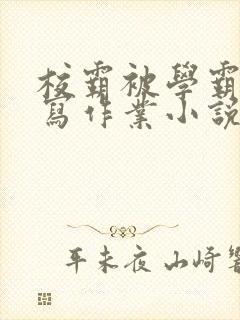 校霸被學霸
寫作業小說
平未夜 山崎響